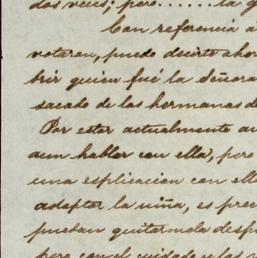 dos veces; pero......la q
Con referencia á
votaron, puedo decirte ahor
brir quien fué la señora
sacado de las hermanas d
Por estar actualmente au
aun hablar con ella, pero
una esplicacion con ell
adoptar la niña, es prec
puedan quitarnola desp
pero con el cuidado y las